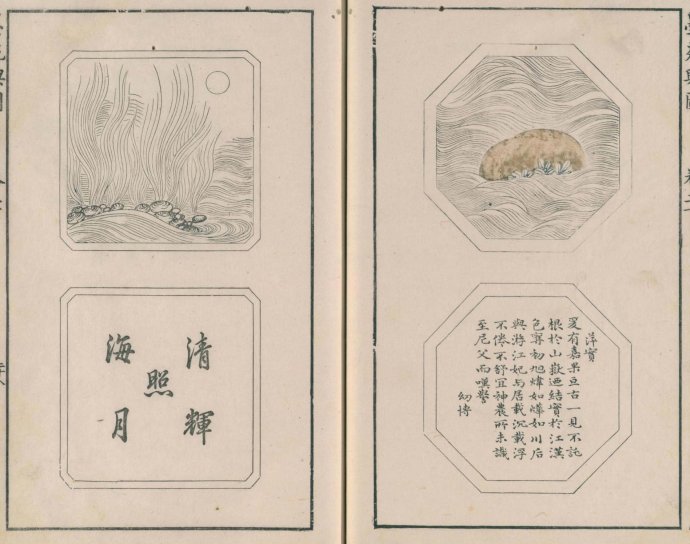 萍實
爰有嘉果亘古一見不託
根於山嶽迺結實於江漢
色奪初旭煒如燁如川后
與游江妃与居載沉載浮
不倦不舒宜神農所未識
至尼父而嘆譽
幼博
清輝
照
海月